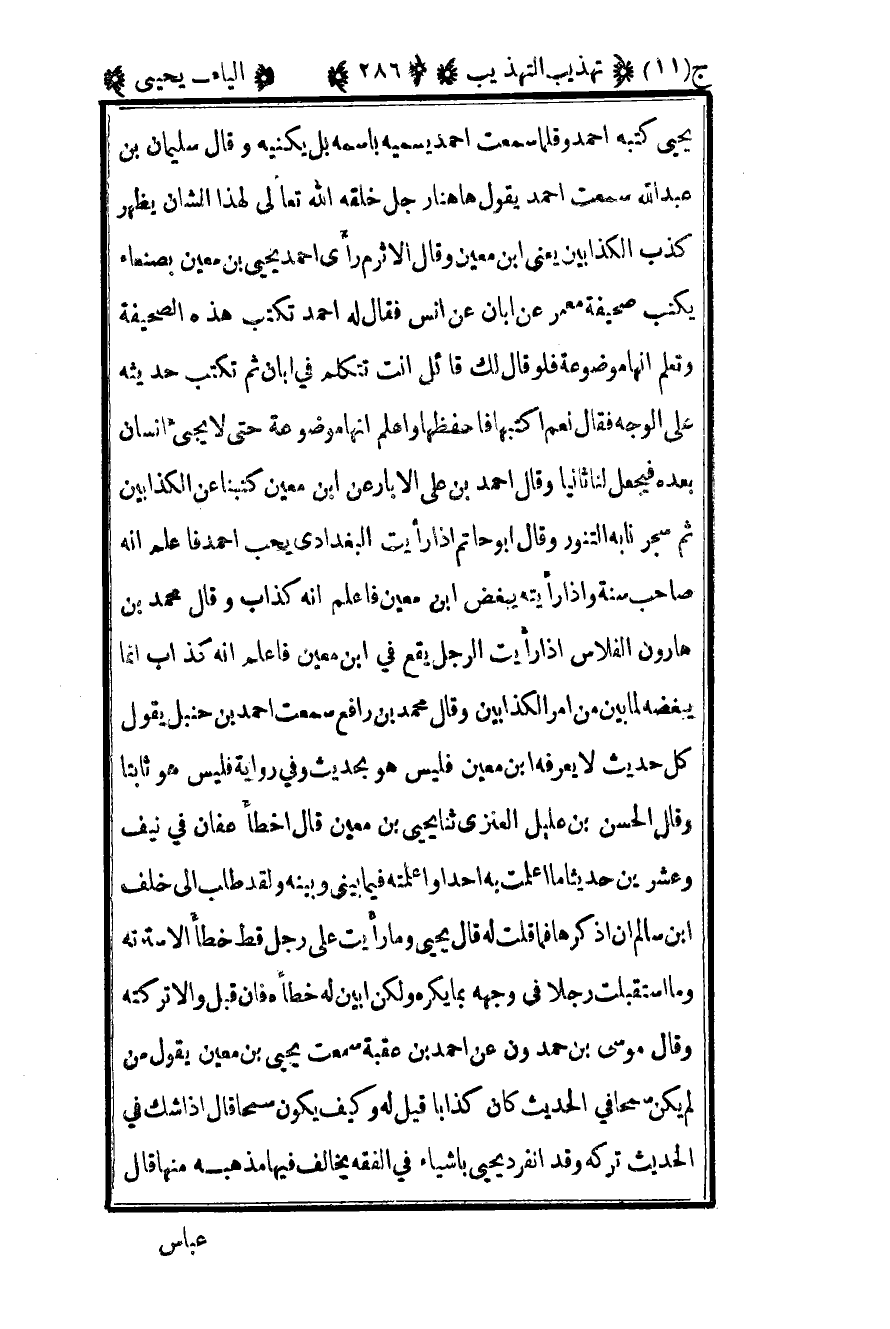 ج (١١) تهذيب التهذيب ٢٨٦ الياء ـ يحيى
يحيى كتبه احمد وقلما سمعت احمد يسميه باسمه بل يكنيه و قال سليمان بن
عبد الله سمعت احمد يقول هاهنا رجل خلقه الله تعالى لهذا الشان يظهر
كذب الكذابين يعنى ابن معين وقال الاثرم رأى احمد يحيى بن معين بصنعاء
يكتب صحيفة معمر عن ابان عن انس فقال له احمد تكتب هذه الصحيفة
وتعلم انها موضوعة فلو قال لك قائل انت تتكلم في ابان ثم تكتب حديثه
على الوجه فقال نعم اكتبها فاحفظها واعلم انها موضوعة حتى لا يجئ انسان
بعده فيجعل لنا ثانيا وقال احمد بن على الابار عن ابن معين كتبنا عن الكذابين
ثم سجرنا به التنور وقال ابو حاتم اذا رأيت البغدادى يحب احمد فاعلم انه
صاحب سنة واذا رأيته يبغض ابن معين فاعلم انه كذاب و قال محمد بن
هارون الفلاس اذا رأيت الرجل يقع في ابن معين فاعلم انه كذاب انما
يبغضه لما بين من امر الكذابين وقال محمد بن رافع سمعت احمد بن حنبل يقول
كل حديث لا يعرفه ابن معين فليس هو بحديث وفي رواية فليس هو ثابتا
وقال الحسن بن عليل العنزى ثنا يحيى بن معين قال اخطأ عفان في نيف
وعشرين حديثا ما اعلمت به احدا واعلمته فيما بيني وبينه ولقد طلب الى خلف
ابن سالم ان اذكرها فما قلت له قال يحيى وما رأيت على رجل قط خطأ الا سترته
وما استقبلت رجلا في وجهه بما يكره ولكن ابين له خطأه فان قبل والا تركته
وقال موسى بن حمدون عن احمد بن عقبة سمعت يحيى بن معين يقول من
لم يكن سمحا في الحديث كان كذابا قيل له وكيف يكون سمحا قال اذا شك في
الحديث تركه وقد انفرد يحيى باشياء في الفقه يخالف فيها مذهبه منها قال
عباس